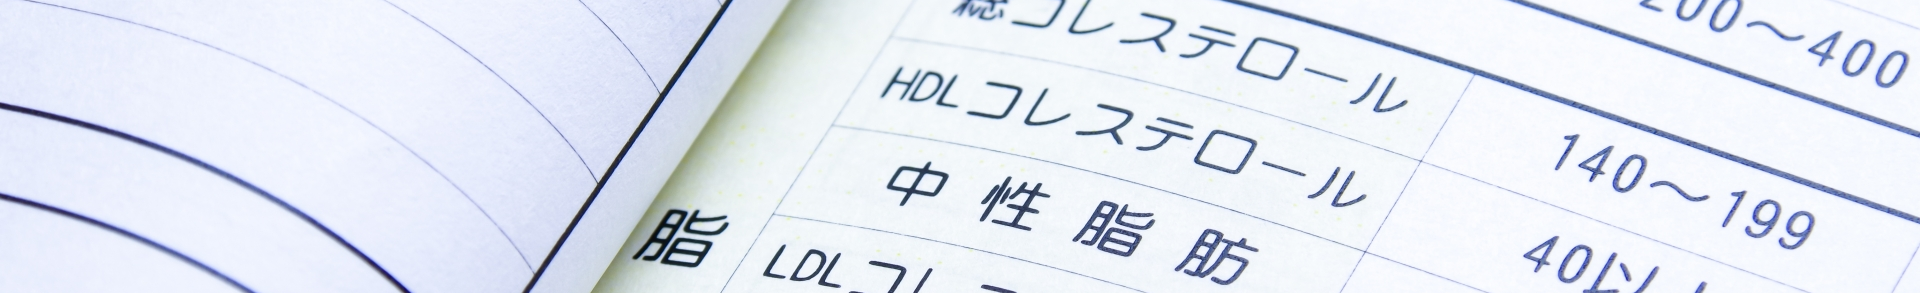 200～400
総コレステロール
140～199
HDLコレステロール
40以上
中性脂肪
脂
LDLコレ